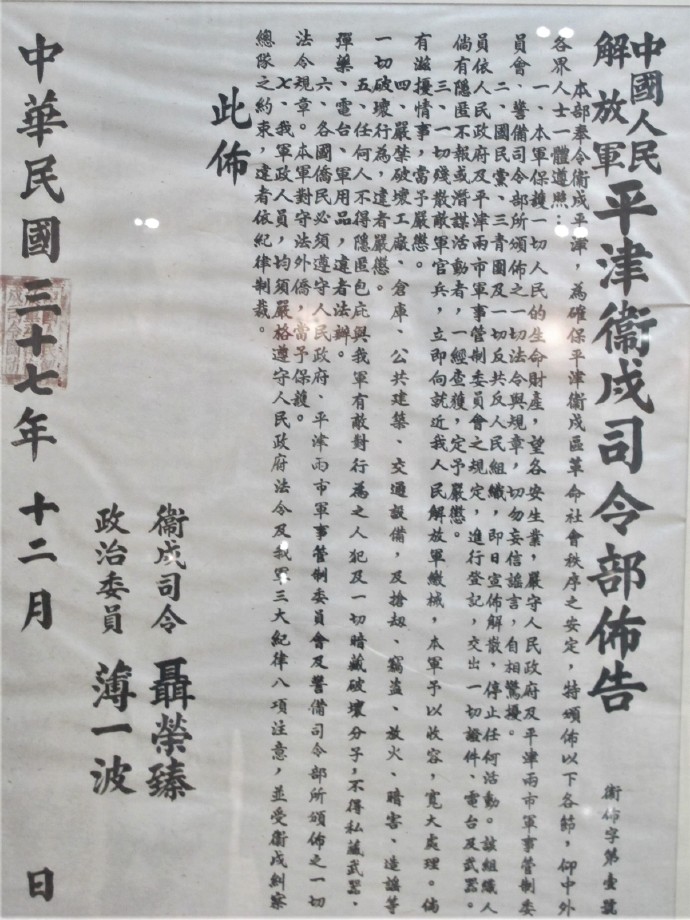 中國人民
解放軍
平津衞戍司令部佈告
衞佈字第壹號
本部奉令衞戍平津，為確保平津衞戍區革命社會秩序之安定，特頒佈以下各節，仰中外
各界人士一體遵照：
一、本軍保護一切人民的生命財產，望各安生業，嚴守人民政府及平津兩市軍事管制委
員會、警備司令部所頒佈之一切法令與規章，切勿妄信謠言，自相驚擾。
二、國民黨、三青團及一切反共反人民組織，即日宣佈解散，停止任何活動。該組織人
員依人民政府及平津兩市軍事管制委員會之規定，進行登記，交出一切證件、電台及武器。
倘有隱匿不報或潛謀活動者，一經查獲，定予嚴懲。
三、一切殘散敵軍官兵，立即向就近我人民解放軍繳械，本軍予以收容，寬大處理。倘
有滋擾情事，當予嚴懲。
四、嚴禁破壞工廠、倉庫、公共建築、交通設備，及搶刼、竊盜、放火、暗害、造謠等
一切破壞行為，違者嚴懲。
五、任何人不得隱匿包庇與我軍有敵對行為之人犯及一切暗藏破壞分子，不得私藏武器、
彈藥、電台、軍用品，違者法辦。
六、各國僑民必須遵守人民政府、平津兩市軍事管制委員會及警備司令部所頒佈之一切
法令規章。本軍對守法外僑，當予保護。
七、我軍政人員，均須嚴格遵守人民政府法令及我軍三大紀律八項注意，並受衞戍糾察
總隊之約束，違者依紀律制裁。
此佈
衞戍司令 聶榮臻
政治委員 薄一波
中華民國三十七年十二月 日